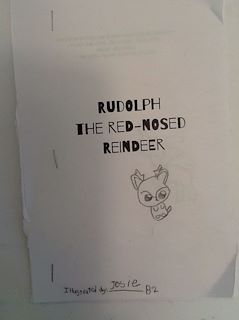 RUDOLPH
THE RED-NOSED
REINDEER
Illustrated by: Josie B2